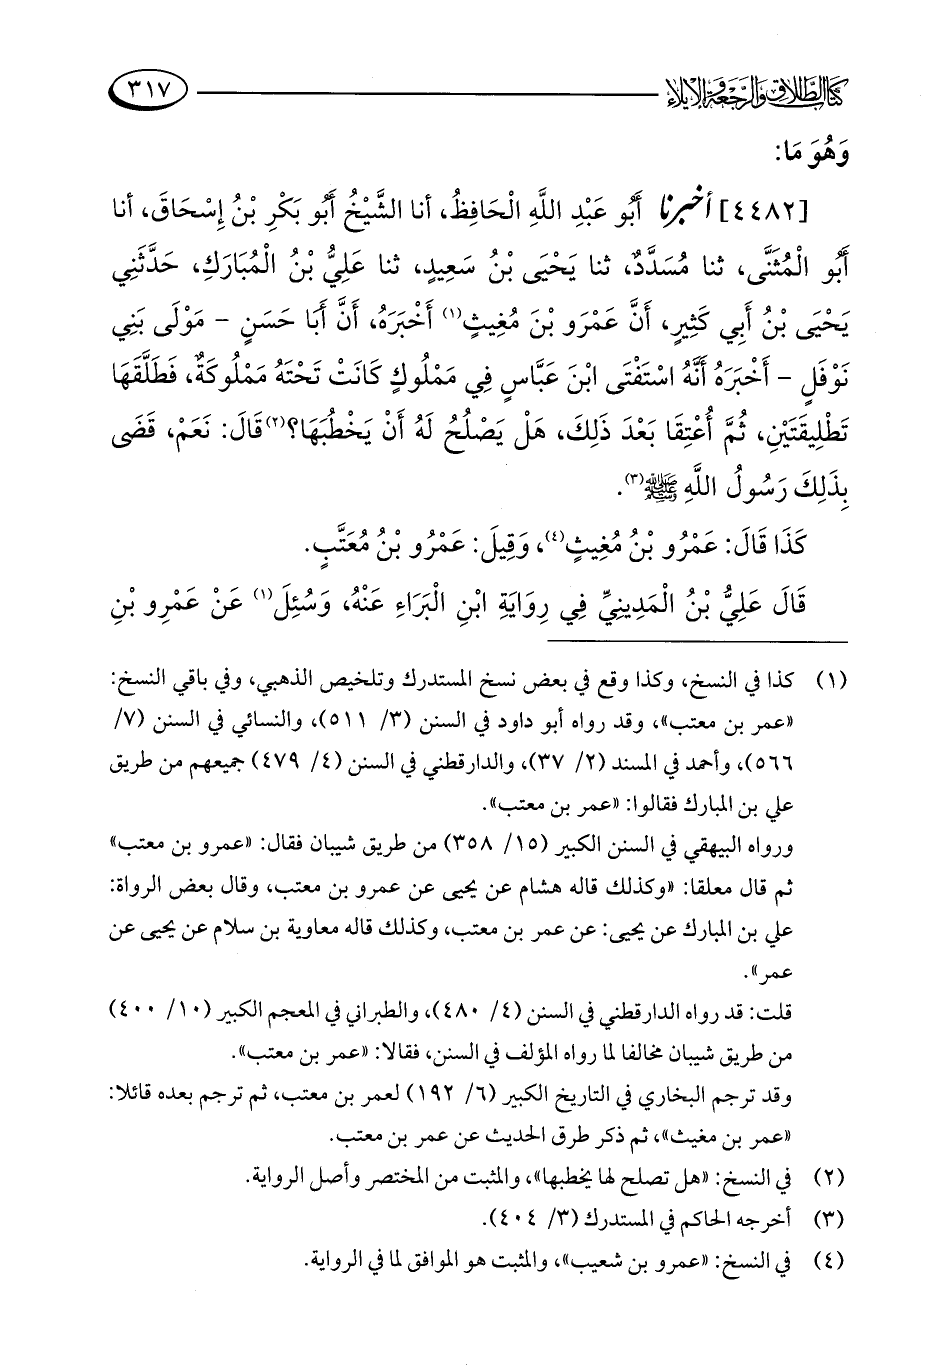 كتاب الطلاق والرجعة والإيلاء ٣١٧
وَهُوَ مَا:
[٤٤٨٢] أخبرنا أَبُو عَبْدِ اللَّهِ الْحَافِظُ، أنا الشَّيْخُ أَبُو بَكْرِ بْنُ إِسْحَاقَ، أنا
أَبُو الْمُثَنَّى، ثنا مُسَدَّدٌ، ثنا يَحْيَى بْنُ سَعِيدٍ، ثنا عَلِيُّ بْنُ الْمُبَارَكِ، حَدَّثَنِي
يَحْيَى بْنُ أَبِي كَثِيرٍ، أَنَّ عَمْرَو بْنَ مُغِيثٍ(١) أَخْبَرَهُ، أَنَّ أَبَا حَسَنٍ - مَوْلَى بَنِي
نَوْفَلٍ - أَخْبَرَهُ أَنَّهُ اسْتَفْتَى ابْنَ عَبَّاسٍ فِي مَمْلُوكٍ كَانَتْ تَحْتَهُ مَمْلُوكَةٌ، فَطَلَّقَهَا
تَطْلِيقَتَيْنِ، ثُمَّ أُعْتِقَا بَعْدَ ذَلِكَ، هَلْ يَصْلُحُ لَهُ أَنْ يَخْطُبَهَا؟(٢) قَالَ: نَعَمْ، قَضَى
بِذَلِكَ رَسُولُ اللَّهِ ﷺ(٣).
كَذَا قَالَ: عَمْرُو بْنُ مُغِيثٍ(٤)، وَقِيلَ: عَمْرُو بْنُ مُعَتَّبٍ.
قَالَ عَلِيُّ بْنُ الْمَدِينِيِّ فِي رِوَايَةِ ابْنِ الْبَرَاءِ عَنْهُ، وَسُئِلَ(١) عَنْ عَمْرِو بْنِ
(١) كذا في النسخ، وكذا وقع في بعض نسخ المستدرك وتلخيص الذهبي، وفي باقي النسخ:
«عمر بن معتب»، وقد رواه أبو داود في السنن (٣/ ٥١١)، والنسائي في السنن (٧/
٥٦٦)، وأحمد في المسند (٢/ ٣٧)، والدارقطني في السنن (٤/ ٤٧٩) جميعهم من طريق
علي بن المبارك فقالوا: «عمر بن معتب».
ورواه البيهقي في السنن الكبير (١٥/ ٣٥٨) من طريق شيبان فقال: «عمرو بن معتب»
ثم قال معلقا: «وكذلك قاله هشام عن يحيى عن عمرو بن معتب، وقال بعض الرواة:
علي بن المبارك عن يحيى: عن عمر بن معتب، وكذلك قاله معاوية بن سلام عن يحيى عن
عمر».
قلت: قد رواه الدارقطني في السنن (٤/ ٤٨٠)، والطبراني في المعجم الكبير (١٠/ ٤٠٠)
من طريق شيبان مخالفا لما رواه المؤلف في السنن، فقالا: «عمر بن معتب».
وقد ترجم البخاري في التاريخ الكبير (٦/ ١٩٢) لعمر بن معتب، ثم ترجم بعده قائلا:
«عمر بن مغيث»، ثم ذكر طرق الحديث عن عمر بن معتب.
(٢) في النسخ: «هل تصلح لها يخطبها»، والمثبت من المختصر وأصل الرواية.
(٣) أخرجه الحاكم في المستدرك (٣/ ٤٠٤).
(٤) في النسخ: «عمرو بن شعيب»، والمثبت هو الموافق لما في الرواية.